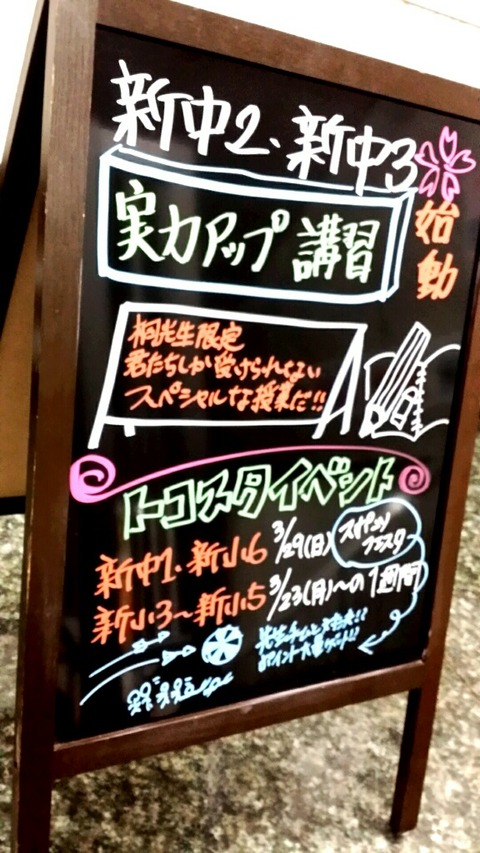 新中2、新中3
始動
実力アップ講習
桐光生限定
君たちしか受けられない
スペシャルな授業だ!!
トコスタイベント
新中1・新小6 3/29(日)
スポーツ
フェスタ
新小3〜新小5 3/23(月)〜の1週間
先生チームと
ポイント大量ゲット!!